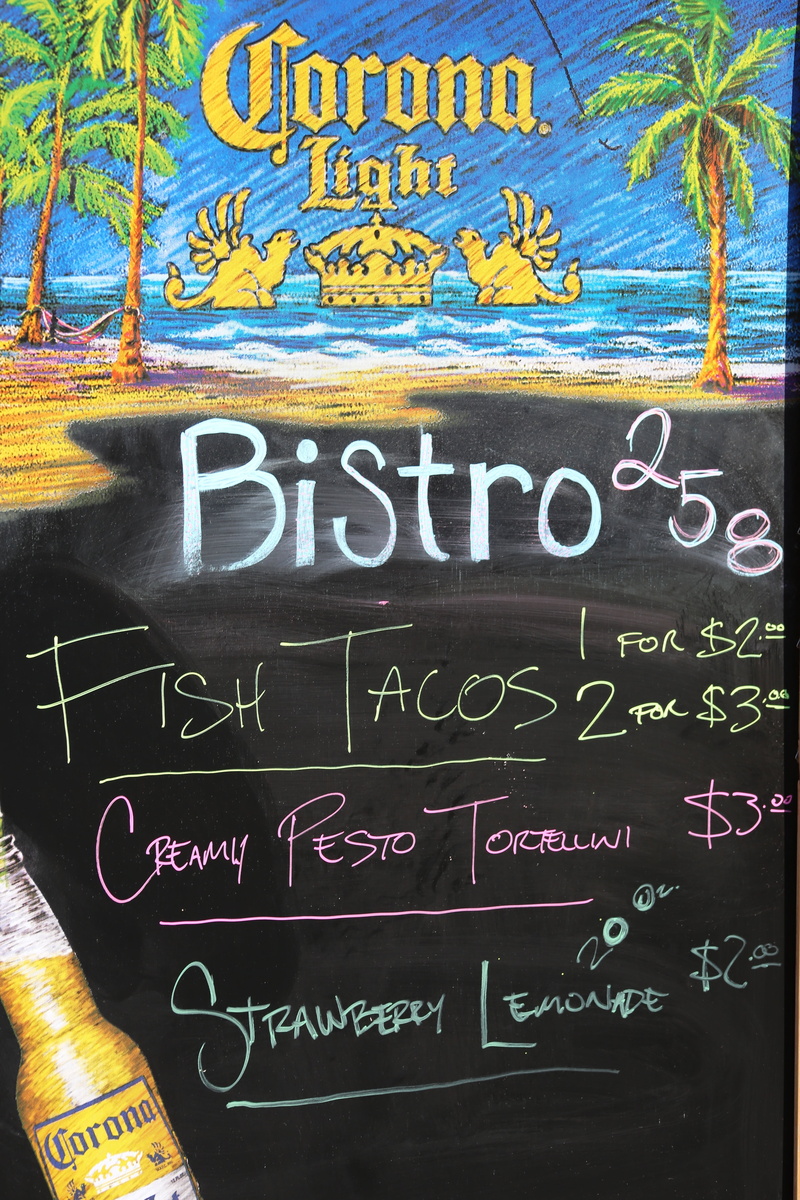 Corona
Light
Bistro 258
FISH TACOS
1 FOR $2.00
2 FOR $3.00
CREAMY PESTO TORTELLINI $3.00
20 oz.
STRAWBERRY LEMONADE $2.00
Corona